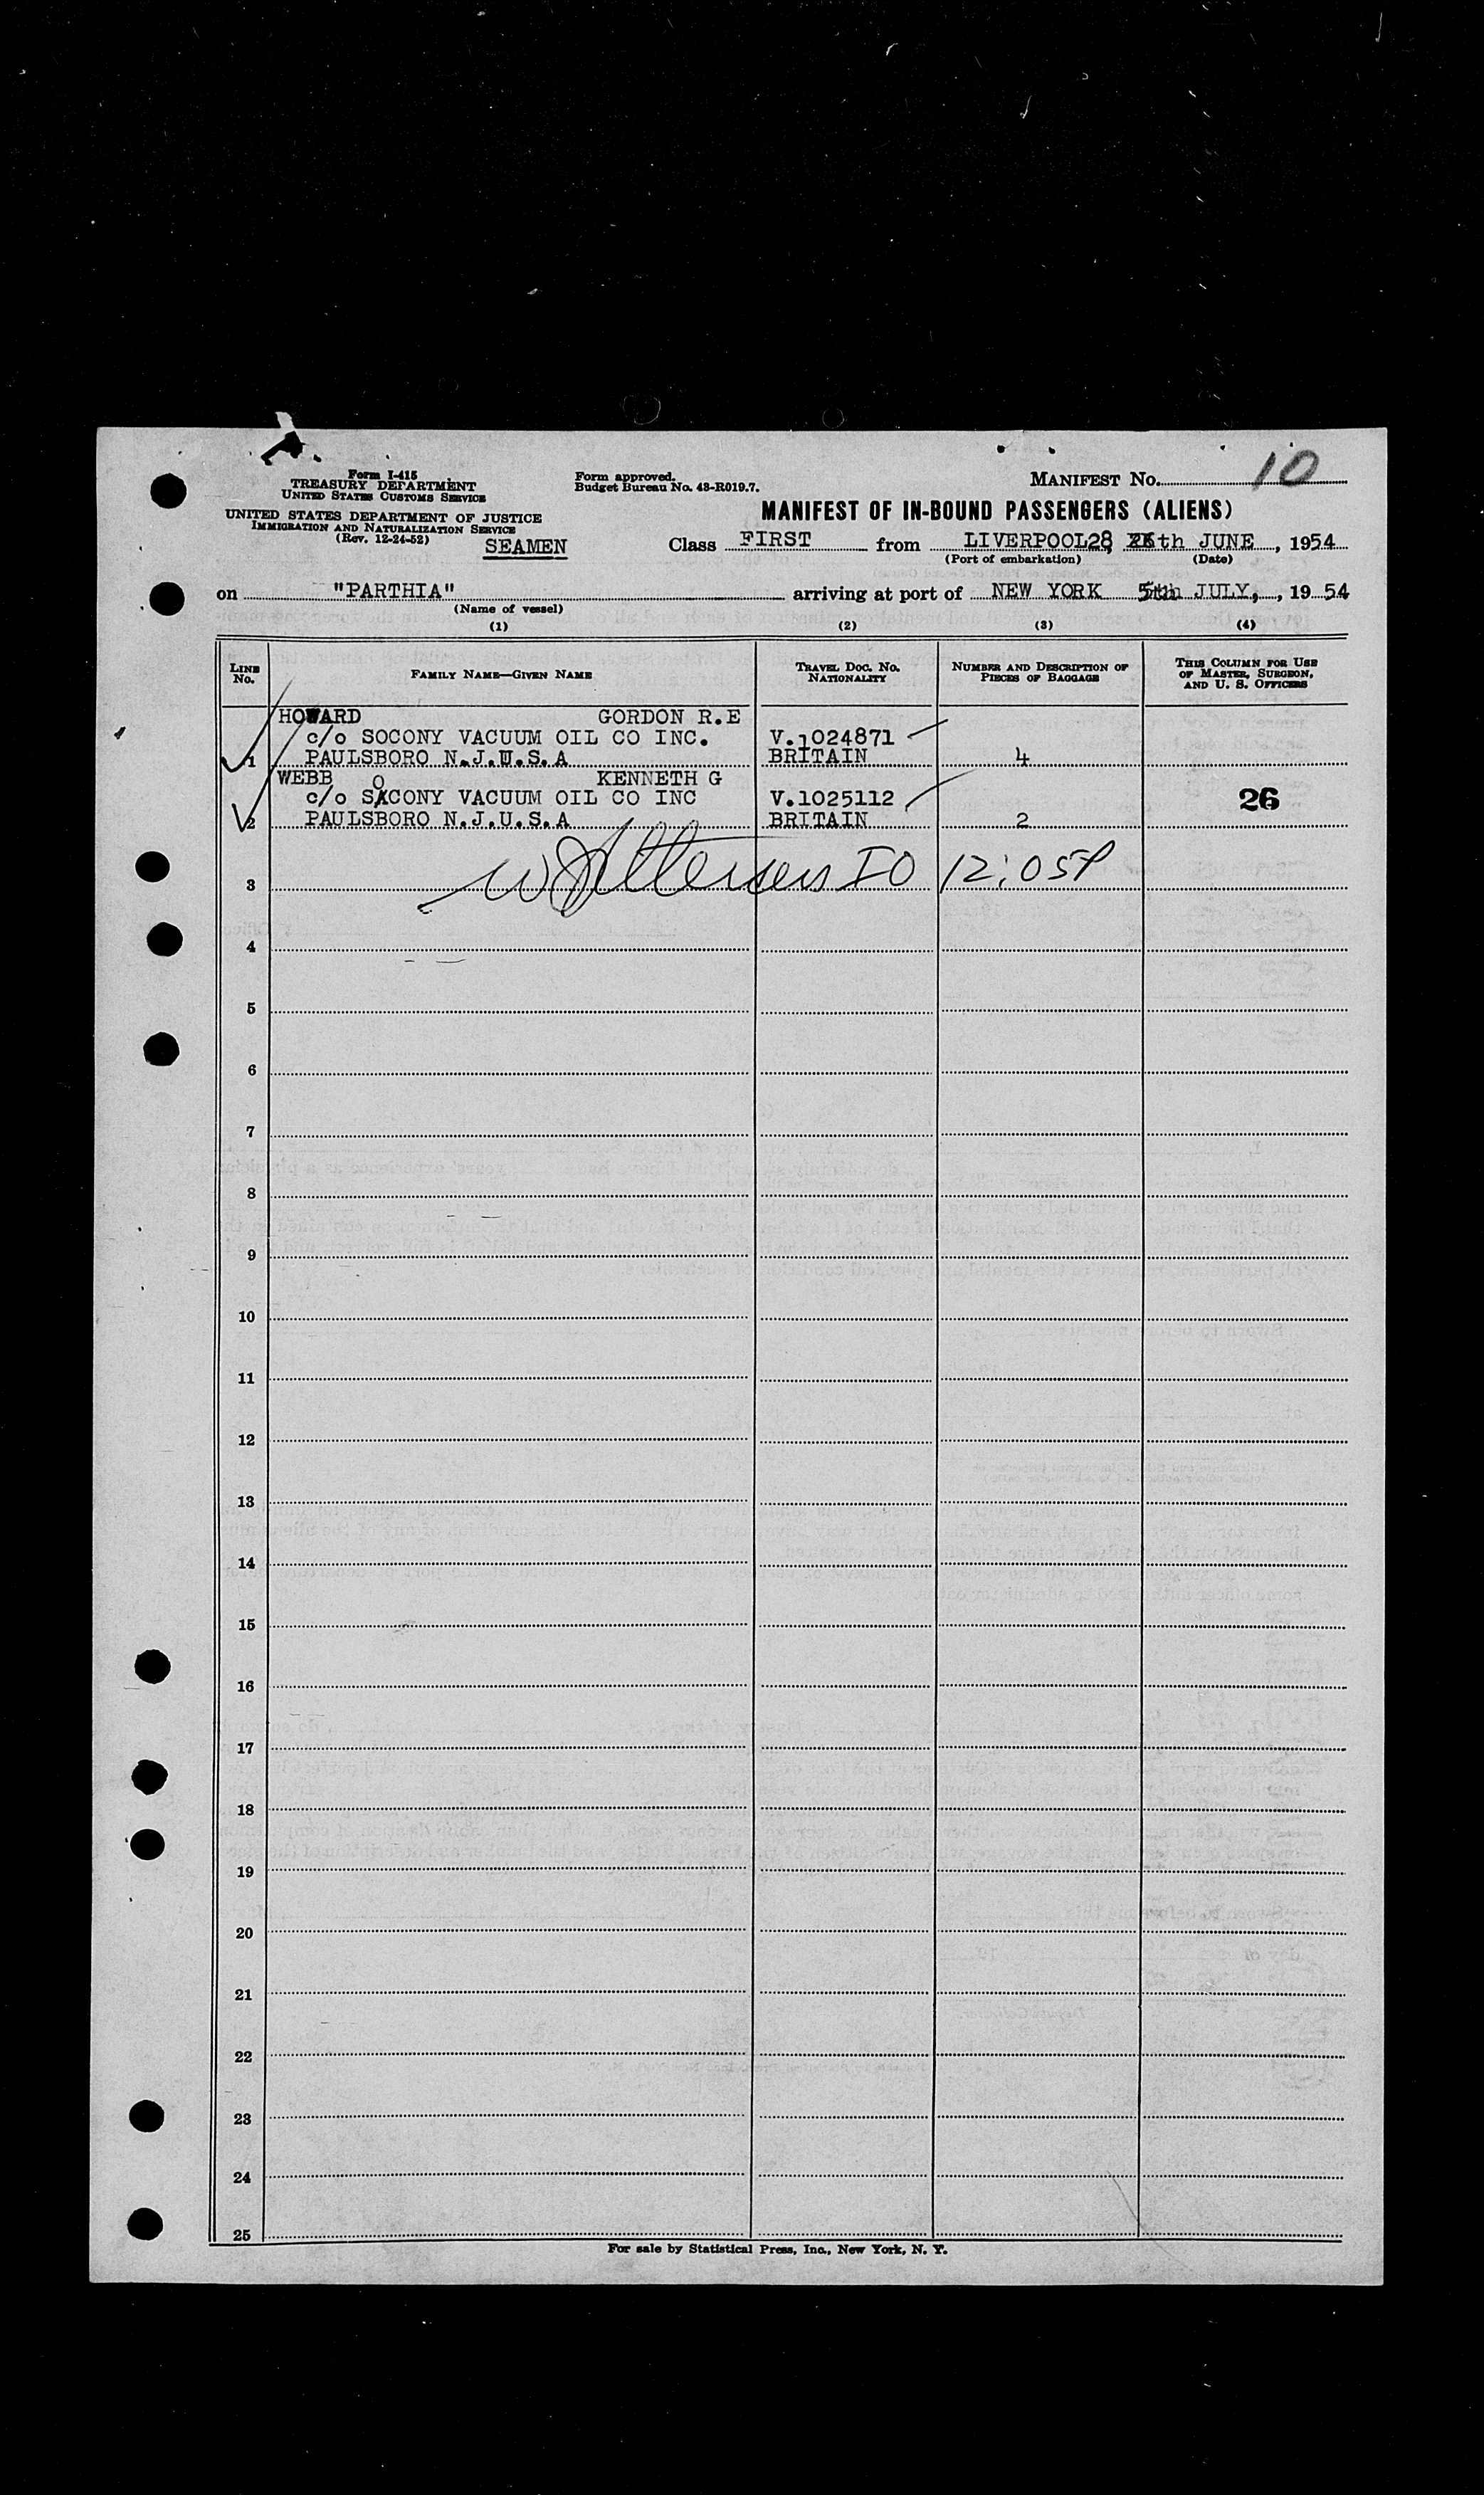 Form I-415
TREASURY DEPARTMENT
UNITED STATES CUSTOMS SERVICE
UNITED STATES DEPARTMENT OF JUSTICE
IMMIGRATION AND NATURALIZATION SERVICE
(Rev. 12-24-52)
SEAMEN
Form approved.
Budget Bureau No. 43-R019.7.
MANIFEST No. 10
MANIFEST OF IN-BOUND PASSENGERS (ALIENS)
Class FIRST from LIVERPOOL 28 th JUNE, 1954
(Port of embarkation) (Date)
on "PARTHIA" arriving at port of NEW YORK 5th JULY, , 1954
(Name of vessel)
(1) (2) (3) (4)
LINE No. FAMILY NAME—GIVEN NAME TRAVEL DOC. NO. NATIONALITY NUMBER AND DESCRIPTION OF PIECES OF BAGGAGE THIS COLUMN FOR USE OF MASTER, SURGEON, AND U. S. OFFICERS
HOWARD GORDON R.E
c/o SOCONY VACUUM OIL CO INC. V.1024871
1 PAULSBORO N.J.U.S.A BRITAIN 4
WEBB KENNETH G
c/o SOCONY VACUUM OIL CO INC V.1025112 26
2 PAULSBORO N.J.U.S.A BRITAIN 2
3 IO 12:05P
4
5
6
7
8
9
10
11
12
13
14
15
16
17
18
19
20
21
22
23
24
25
For sale by Statistical Press, Inc., New York, N. Y.